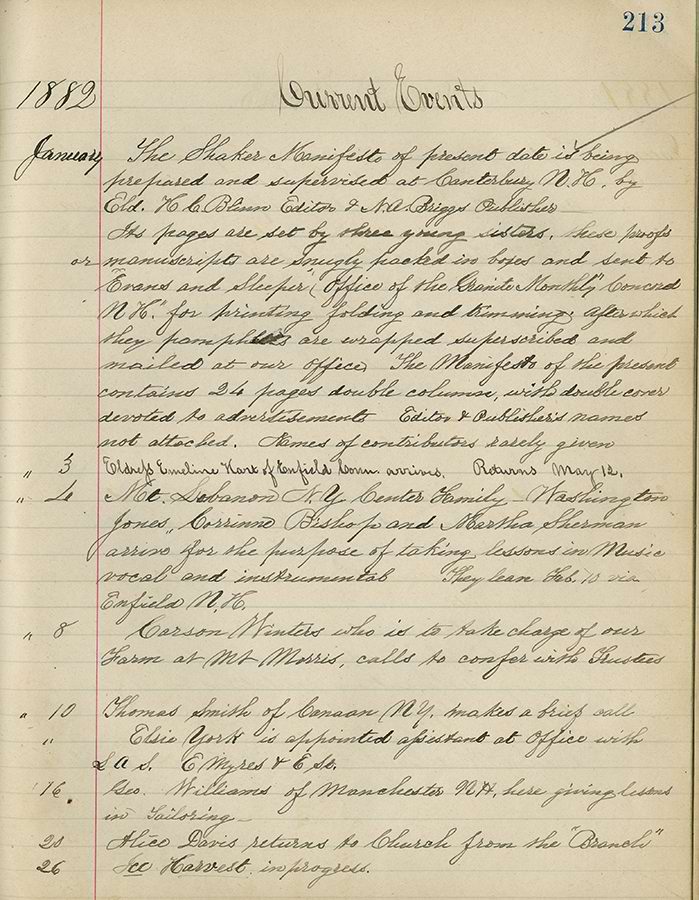 213
1882 Current Events
January The Shaker Manifesto of present date is being
prepared and supervised at Canterbury N.H. by
Eld. H. C. Blinn Editor & N.A. Briggs Publisher
Its pages are set by three young sisters, these proofs
or manuscript are snugly packed in boxes and sent to
"Evans and Sleeper" (Office of the Granite Monthly" Concord
N.H." for printing folding and trimming; after which
they pamphlets are wrapped superscribed and
mailed at our office. The Manifesto of the present
contains 24 pages double column, with double cover
devoted to advertisements Editor & Publisher's names
not attached. Names of contributors rarely given
" 3 Eldress Emeline Hart of Enfield Conn. arrives. Returns May 12.
" 4 Mt. Lebanon N.Y. Center Family – Washington
Jones, Corrinne Bishop and Martha Sherman
arrive for the purpose of taking lessons in Music
vocal and instrumental They Feb. via
Enfield N.H.
" 8 Carson Winters who is to take charge of our
Farm at Mt Morris, calls to confer with Trustees
" 10 Thomas Smith of Canaan N.Y. makes a brief call
" Elsie York is appointed assistant at Office with
L A S. E Myres & E St.
" 16. Geo. Williams of Manchester N.H. here giving lessons
in Tailoring –
Alice Davis returns to Church from the "Branch"
26 Ice Harvest in progress.